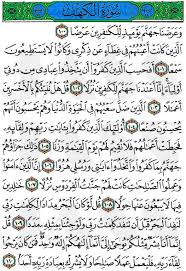 سُورَةُ الْكَهْفِ
وَعَرَضْنَا جَهَنَّمَ يَوْمَئِذٍ لِّلْكَٰفِرِينَ عَرْضًا ١٠٠
ٱلَّذِينَ كَانَتْ أَعْيُنُهُمْ فِى غِطَآءٍ عَن ذِكْرِى وَكَانُوا۟ لَا يَسْتَطِيعُونَ
سَمْعًا ١٠١ أَفَحَسِبَ ٱلَّذِينَ كَفَرُوٓا۟ أَن يَتَّخِذُوا۟ عِبَادِى مِن دُونِىٓ
أَوْلِيَآءَ إِنَّآ أَعْتَدْنَا جَهَنَّمَ لِلْكَٰفِرِينَ نُزُلًا ١٠٢ قُلْ هَلْ نُنَبِّئُكُم بِٱلْأَخْسَرِينَ
أَعْمَٰلًا ١٠٣ ٱلَّذِينَ ضَلَّ سَعْيُهُمْ فِى ٱلْحَيَوٰةِ ٱلدُّنْيَا وَهُمْ يَحْسَبُونَ أَنَّهُمْ
يُحْسِنُونَ صُنْعًا ١٠٤ أُو۟لَٰٓئِكَ ٱلَّذِينَ كَفَرُوا۟ بِـَٔايَٰتِ رَبِّهِمْ وَلِقَآئِهِۦ
فَحَبِطَتْ أَعْمَٰلُهُمْ فَلَا نُقِيمُ لَهُمْ يَوْمَ ٱلْقِيَٰمَةِ وَزْنًا ١٠٥ ذَٰلِكَ جَزَآؤُهُمْ
جَهَنَّمُ بِمَا كَفَرُوا۟ وَٱتَّخَذُوٓا۟ ءَايَٰتِى وَرُسُلِى هُزُوًا ١٠٦ إِنَّ ٱلَّذِينَ ءَامَنُوا۟
وَعَمِلُوا۟ ٱلصَّٰلِحَٰتِ كَانَتْ لَهُمْ جَنَّٰتُ ٱلْفِرْدَوْسِ نُزُلًا ١٠٧ خَٰلِدِينَ
فِيهَا لَا يَبْغُونَ عَنْهَا حِوَلًا ١٠٨ قُل لَّوْ كَانَ ٱلْبَحْرُ مِدَادًا لِّكَلِمَٰتِ رَبِّى
لَنَفِدَ ٱلْبَحْرُ قَبْلَ أَن تَنفَدَ كَلِمَٰتُ رَبِّى وَلَوْ جِئْنَا بِمِثْلِهِۦ مَدَدًا ١٠٩
قُلْ إِنَّمَآ أَنَا۠ بَشَرٌ مِّثْلُكُمْ يُوحَىٰٓ إِلَىَّ أَنَّمَآ إِلَٰهُكُمْ إِلَٰهٌ وَٰحِدٌ فَمَن كَانَ يَرْجُوا۟
لِقَآءَ رَبِّهِۦ فَلْيَعْمَلْ عَمَلًا صَٰلِحًا وَلَا يُشْرِكْ بِعِبَادَةِ رَبِّهِۦٓ أَحَدًۢا ١١٠